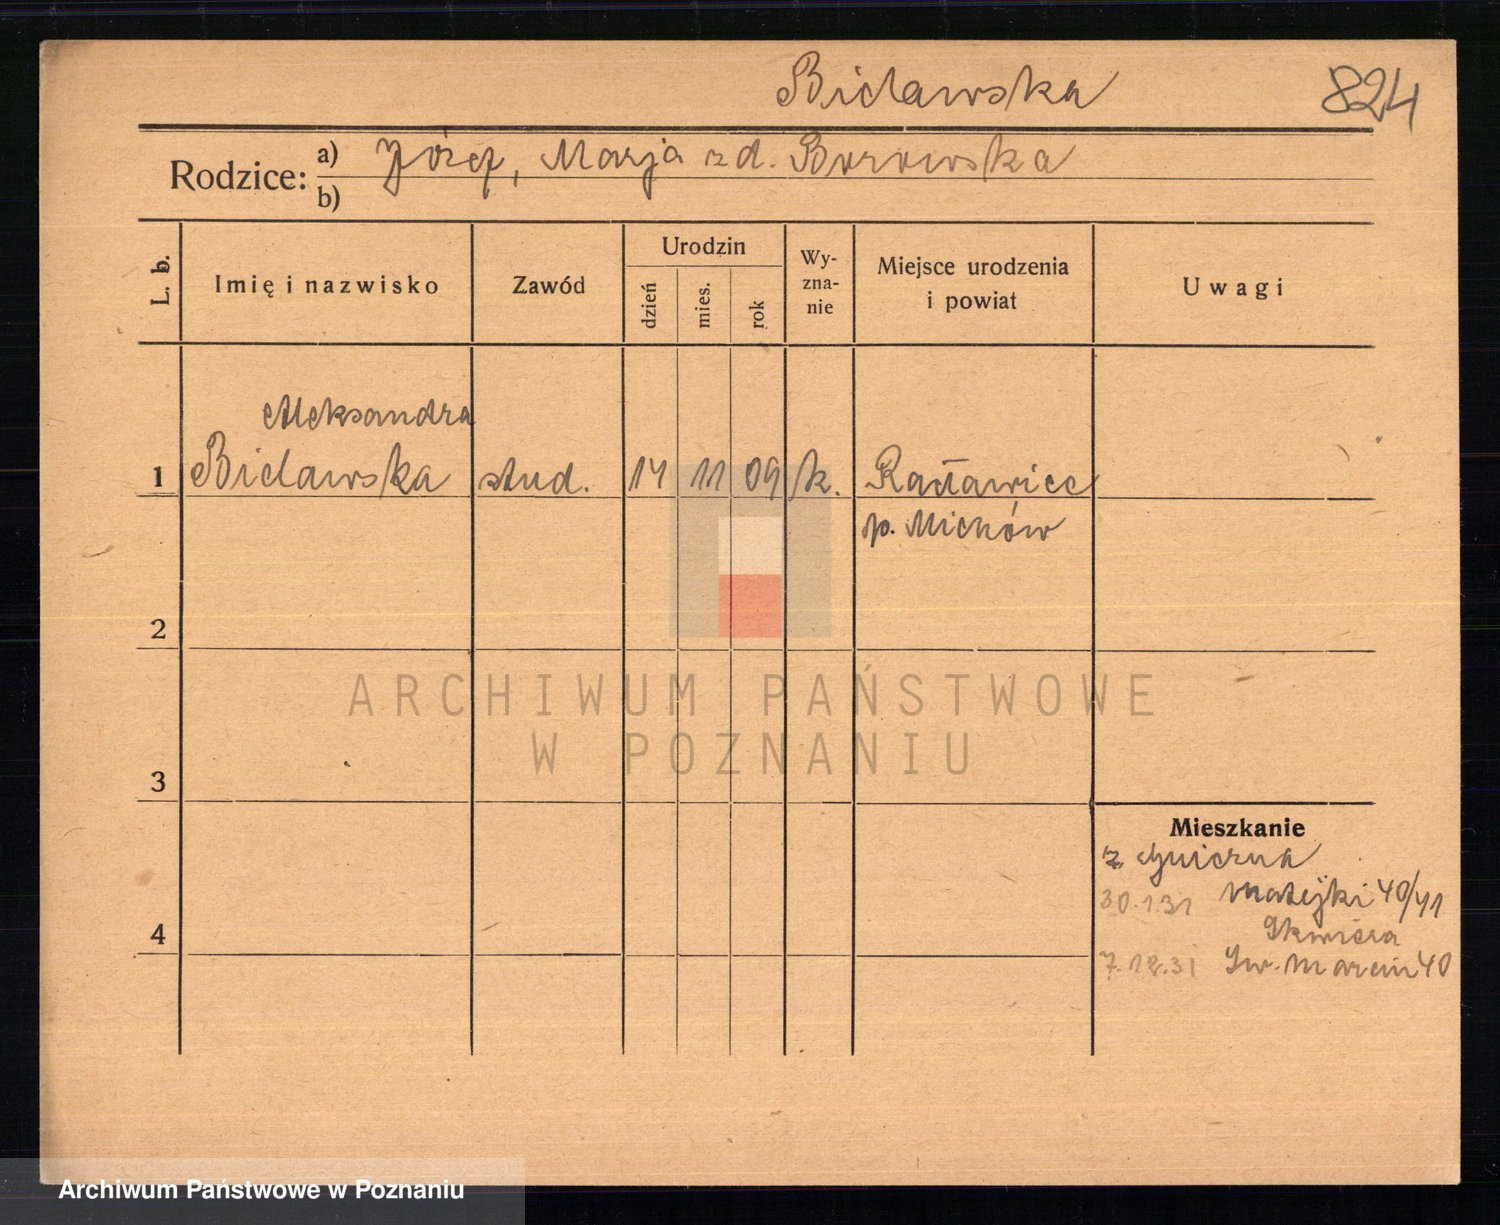 Bielawska 824
Rodzice: a) Józef, Marja z d. Borowska
b)
L. b. Imię i nazwisko Zawód Urodzin dzień mies. rok Wyznanie Miejsce urodzenia i powiat Uwagi
Aleksandra
1 Bielawska stud. 14 11 09 k. Racławice
p. Miechów
2
ARCHIWUM PAŃSTWOWE
W POZNANIU
3
Mieszkanie
z Gniezna
30.1.31 Matejki 40/41
4 Skwiera
7.12.31 Św. Marcin 40
Archiwum Państwowe w Poznaniu